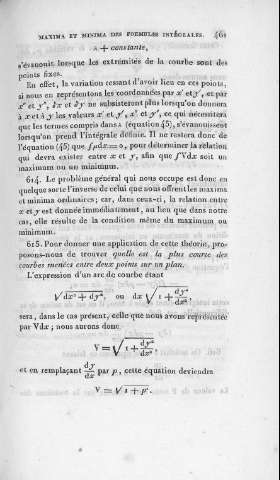 MAXIMA ET MINIMA DES FORMULES INTÉGRALES. 461
A + constante,
s'évanouit lorsque les extrémités de la courbe sont des
points fixes.
En effet, la variation cessant d'avoir lieu en ces points,
si nous en représentons les coordonnées par x' et y', et par
x″ et y″, δx et δy ne subsisteront plus lorsqu'on donnera
à x et à y les valeurs x' et y', x″ et y″, ce qui nécessitera
que les termes compris dans A (équation 45), s'évanouissent
lorsqu'on prend l'intégrale définie. Il ne restera donc de
l'équation (45) que ∫μdx = 0, pour déterminer la relation
qui devra exister entre x et y, afin que ∫Vdx soit un
maximum ou un minimum.
614. Le problème général qui nous occupe est donc en
quelque sorte l'inverse de celui que nous offrent les maxima
et minima ordinaires; car, dans ceux-ci, la relation entre
x et y est donnée immédiatement, au lieu que dans notre
cas, elle résulte de la condition même du maximum ou
minimum.
615. Pour donner une application de cette théorie, pro-
posons-nous de trouver quelle est la plus courte des
courbes menées entre deux points sur un plan.
L'expression d'un arc de courbe étant
√dx² + dy², ou dx √1 + dy²/dx²,
sera, dans le cas présent, celle que nous avons représentée
par Vdx; nous aurons donc
V = √1 + dy²/dx²,
et en remplaçant dy/dx par p, cette équation deviendra
V = √1 + p².